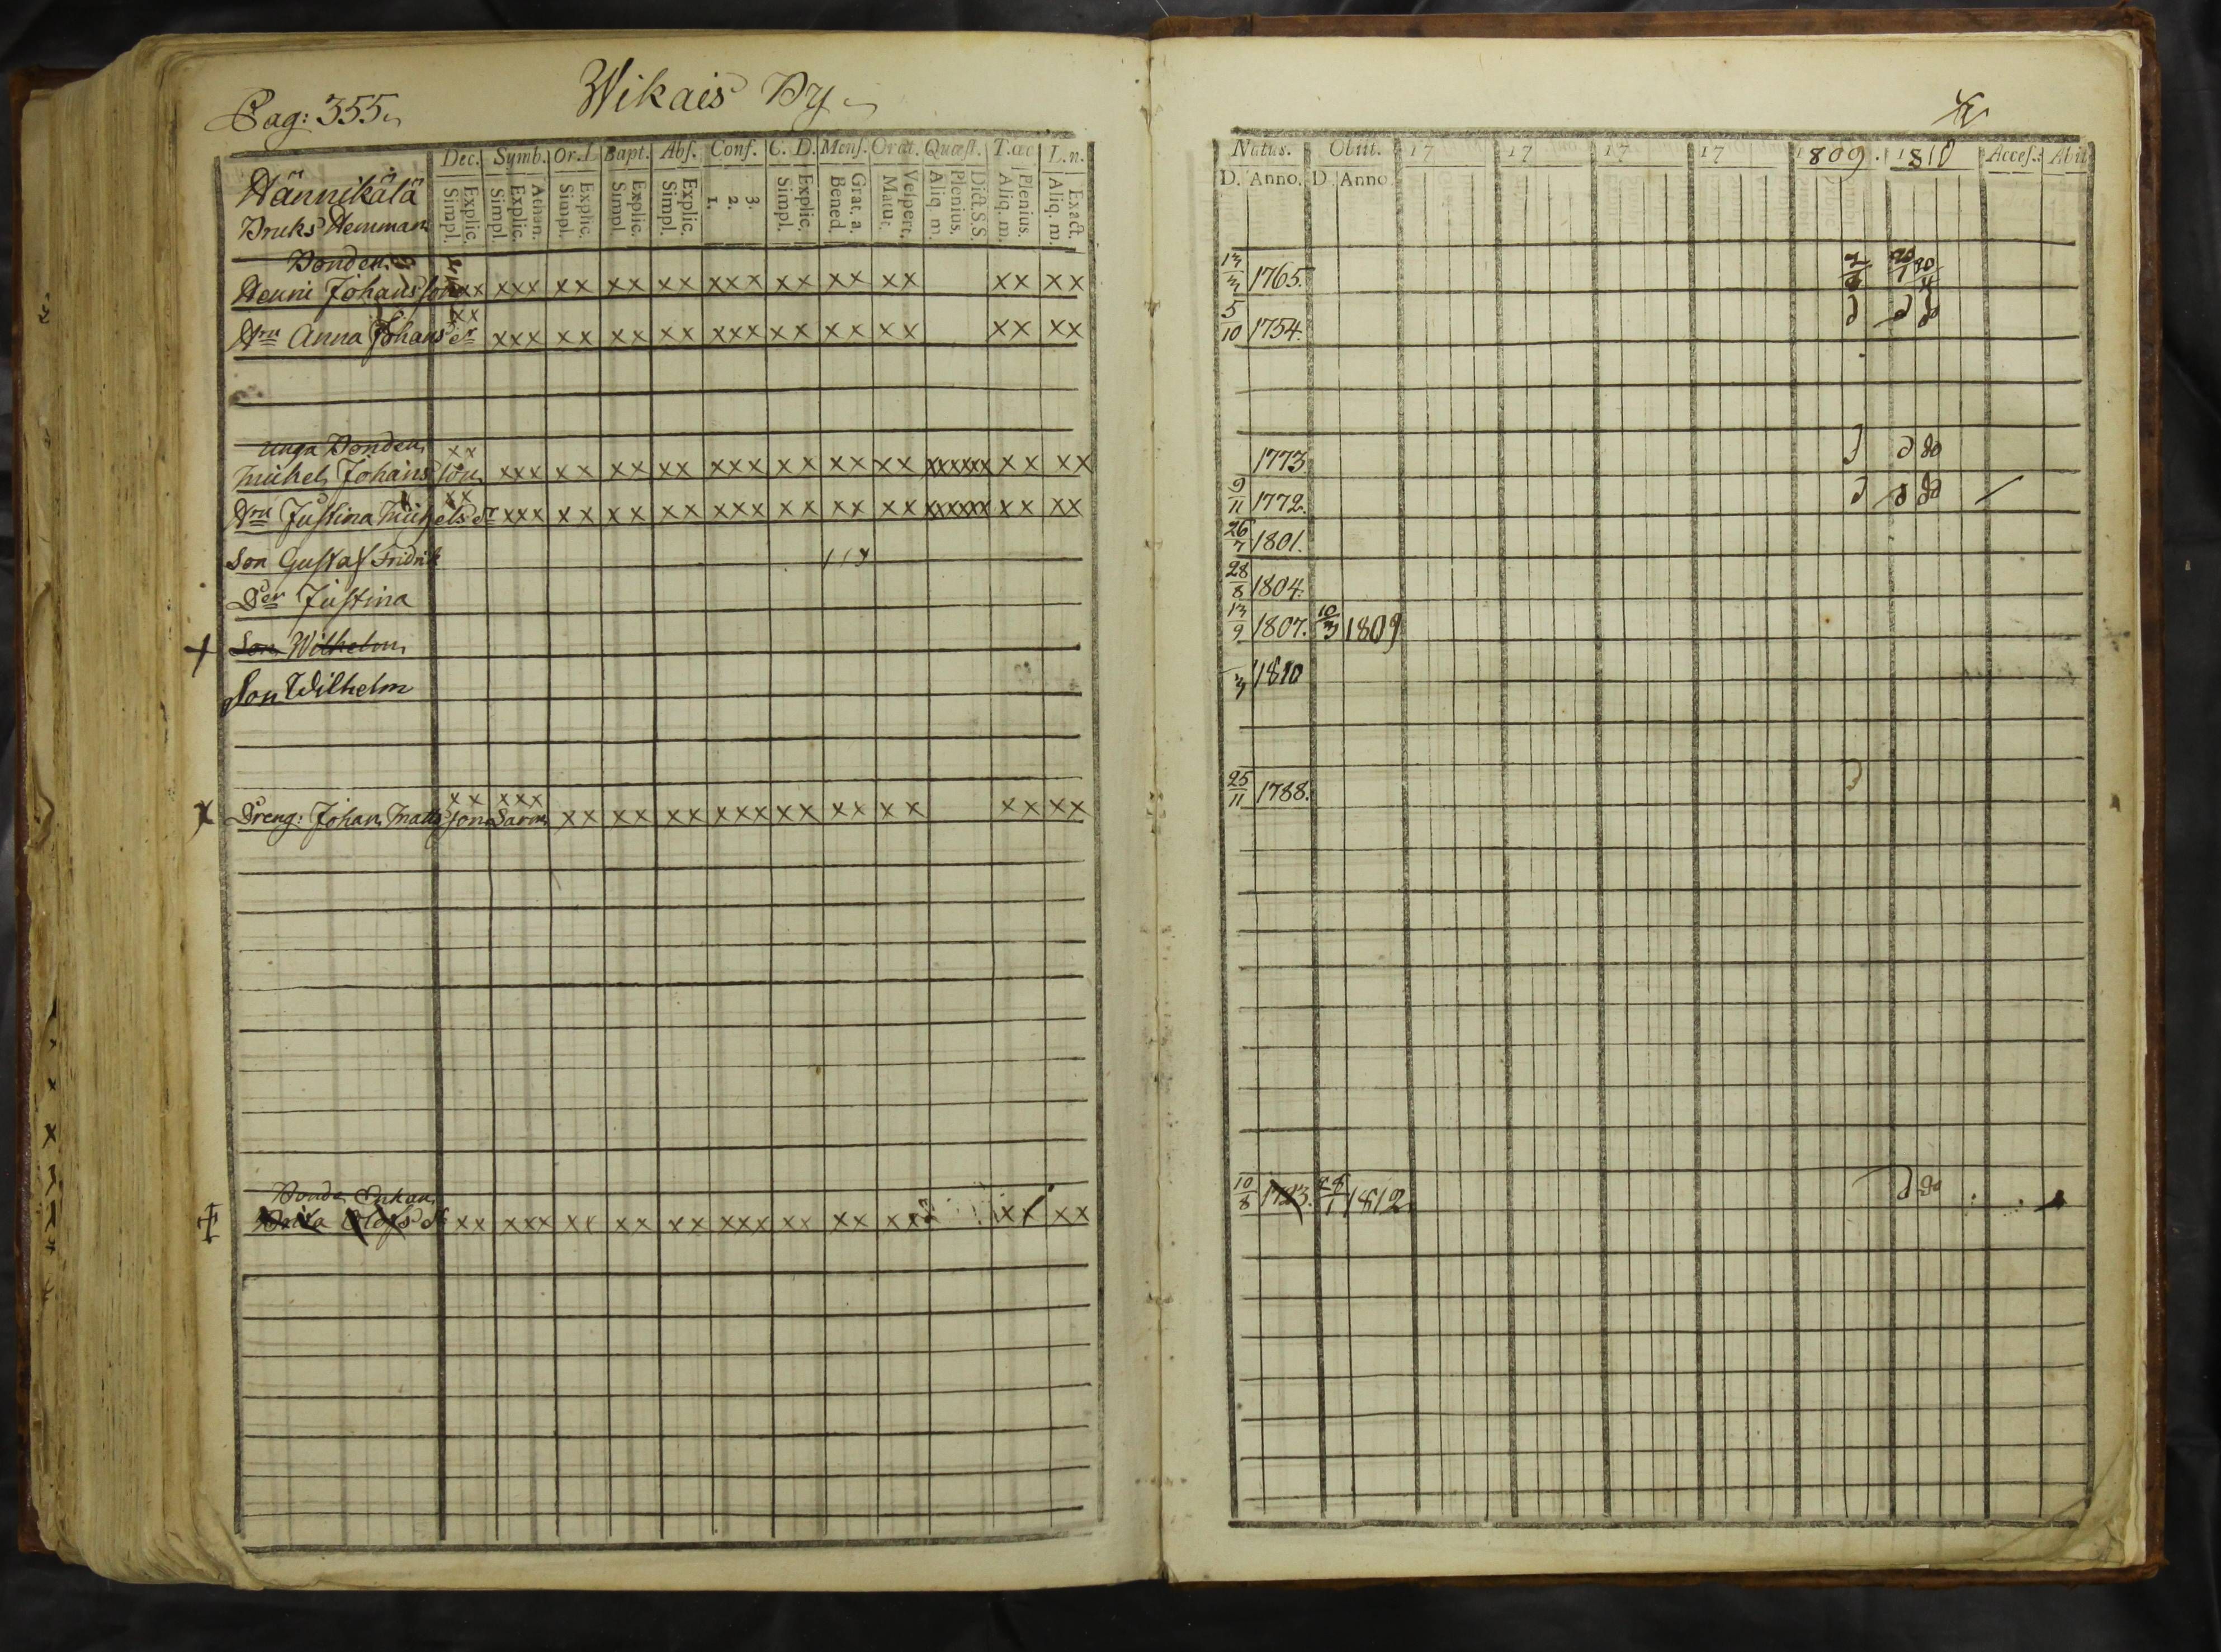 Pag: 355.
Wikais By
Dec. Symb. Or. D. Bapt. Abs. Conf. C. D. Mens. Orat. Quæst. T. œc L. n.
Explic. Simpl. Athan. Explic. Simpl. Explic. Simpl. Explic. Simpl Explic. Simpl. 1. 2. 3. Explic. Simpl. Grat. a. Bened. Vespert. Matut. Dict. S.S. Plenius. Aliq. m. Plenius. Aliq. m. Exact. Aliq. m.
Hännikälä
Bruks Hemman
Bonden
Henric Johansson xx xxx xx xx xx xxx xx xx xx xx xx
Hru Anna Johans dr xx xxx xx xx xx xxx xx xx xx xx xx
unga Bonden
Michel Johansson xx xxx xx xx xx xxx xx xx xx xxxxxx xx xx
Hru Justina Michels dr xx xxx xx xx xx xxx xx xx xx xxxxxx xx xx
Son Gustaf Fridrik
Der Justina
Son Wilhelm
Son Wilhelm
Dreng: Johan Matts son xx xxx xx xx xx xxx xx xx xx xx xx
Bonde Enkan
Brita Olofs dr xx xxx xx xx xx xxx xx xx xx xx xx
Natus. Obiit. 17 17 17 17 1809. 1810 Acces. Abiit
D. Anno. D. Anno
13/3 1765.
5/10 1754.
1773
9/11 1772.
26/7 1801.
28/8 1804.
13/9 1807. 10/3 1809
1810
25/11 1788.
10/8 1723. 1812